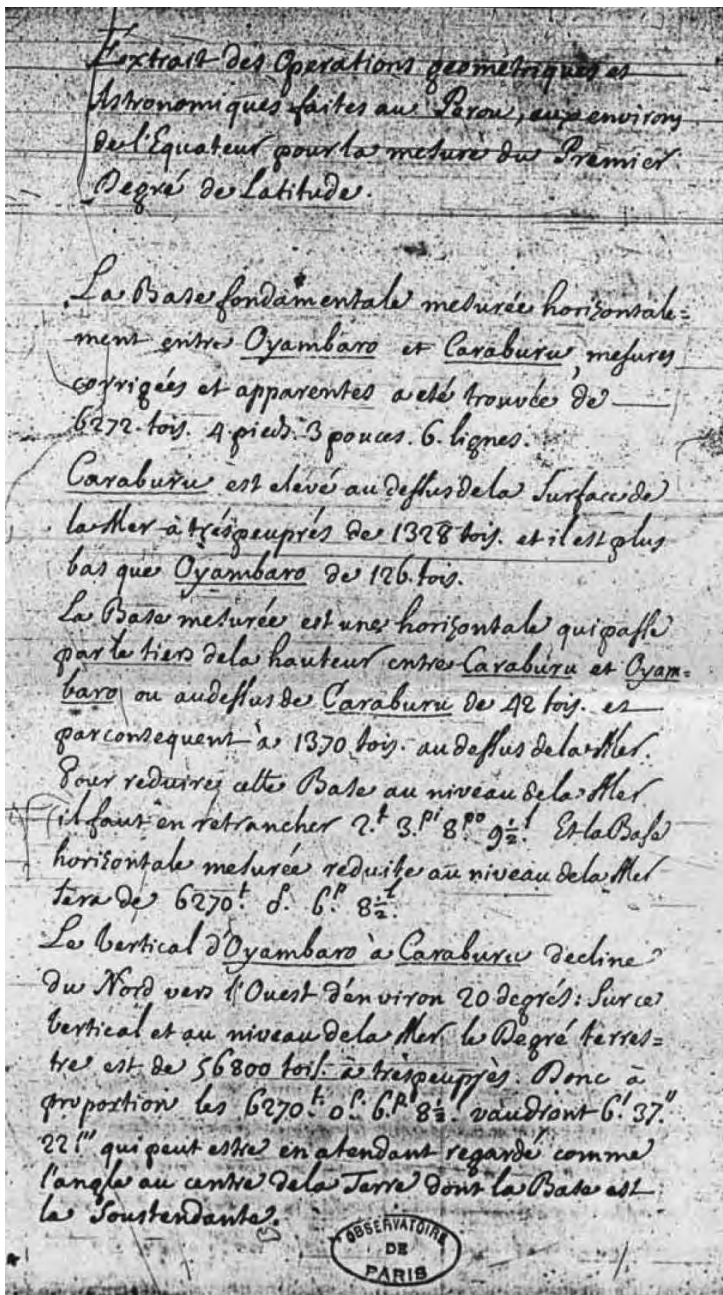 Extrait des Operations geometriques et
Astronomiques faites au Perou, aux environs
de l'Equateur pour la mesure du Premier
Degré de Latitude.
La Base fondamentale mesurée horizontale=
ment entre Oyambaro et Caraburu, mesures
corrigées et apparentes a eté trouvée de
6272. tois. 4. pieds. 3 pouces. 6. lignes.
Caraburu est elevé au dessus de la Surface de
la Mer à très peu prés de 1328 tois. et il est plus
bas que Oyambaro de 126. tois.
La Base mesurée est une horizontale qui passe
par le tiers de la hauteur entre Caraburu et Oyam=
baro ou au dessus de Caraburu de 42 tois. et
par consequent à 1370 tois. au dessus de la Mer.
Pour reduire cette Base au niveau de la Mer
il faut en retrancher 2.t 3.pi 8.po 9½.l Et la Base
horizontale mesurée reduite au niveau de la Mer
sera de 6270.t 0. 6.p 8½.l
Le Vertical d'Oyambaro à Caraburu decline
du Nord vers l'Ouest d'environ 20 degrés: Sur ce
Vertical et au niveau de la Mer le Degré terres=
tre est de 56800 tois. à très peu près. Donc à
proportion les 6270.t 0.p 6.p 8½. vaudront 6.' 37."
22.''' qui peut estre en atendant regardé comme
l'angle au centre de la Terre dont la Base est
la Soustendante.
OBSERVATOIRE
DE
PARIS